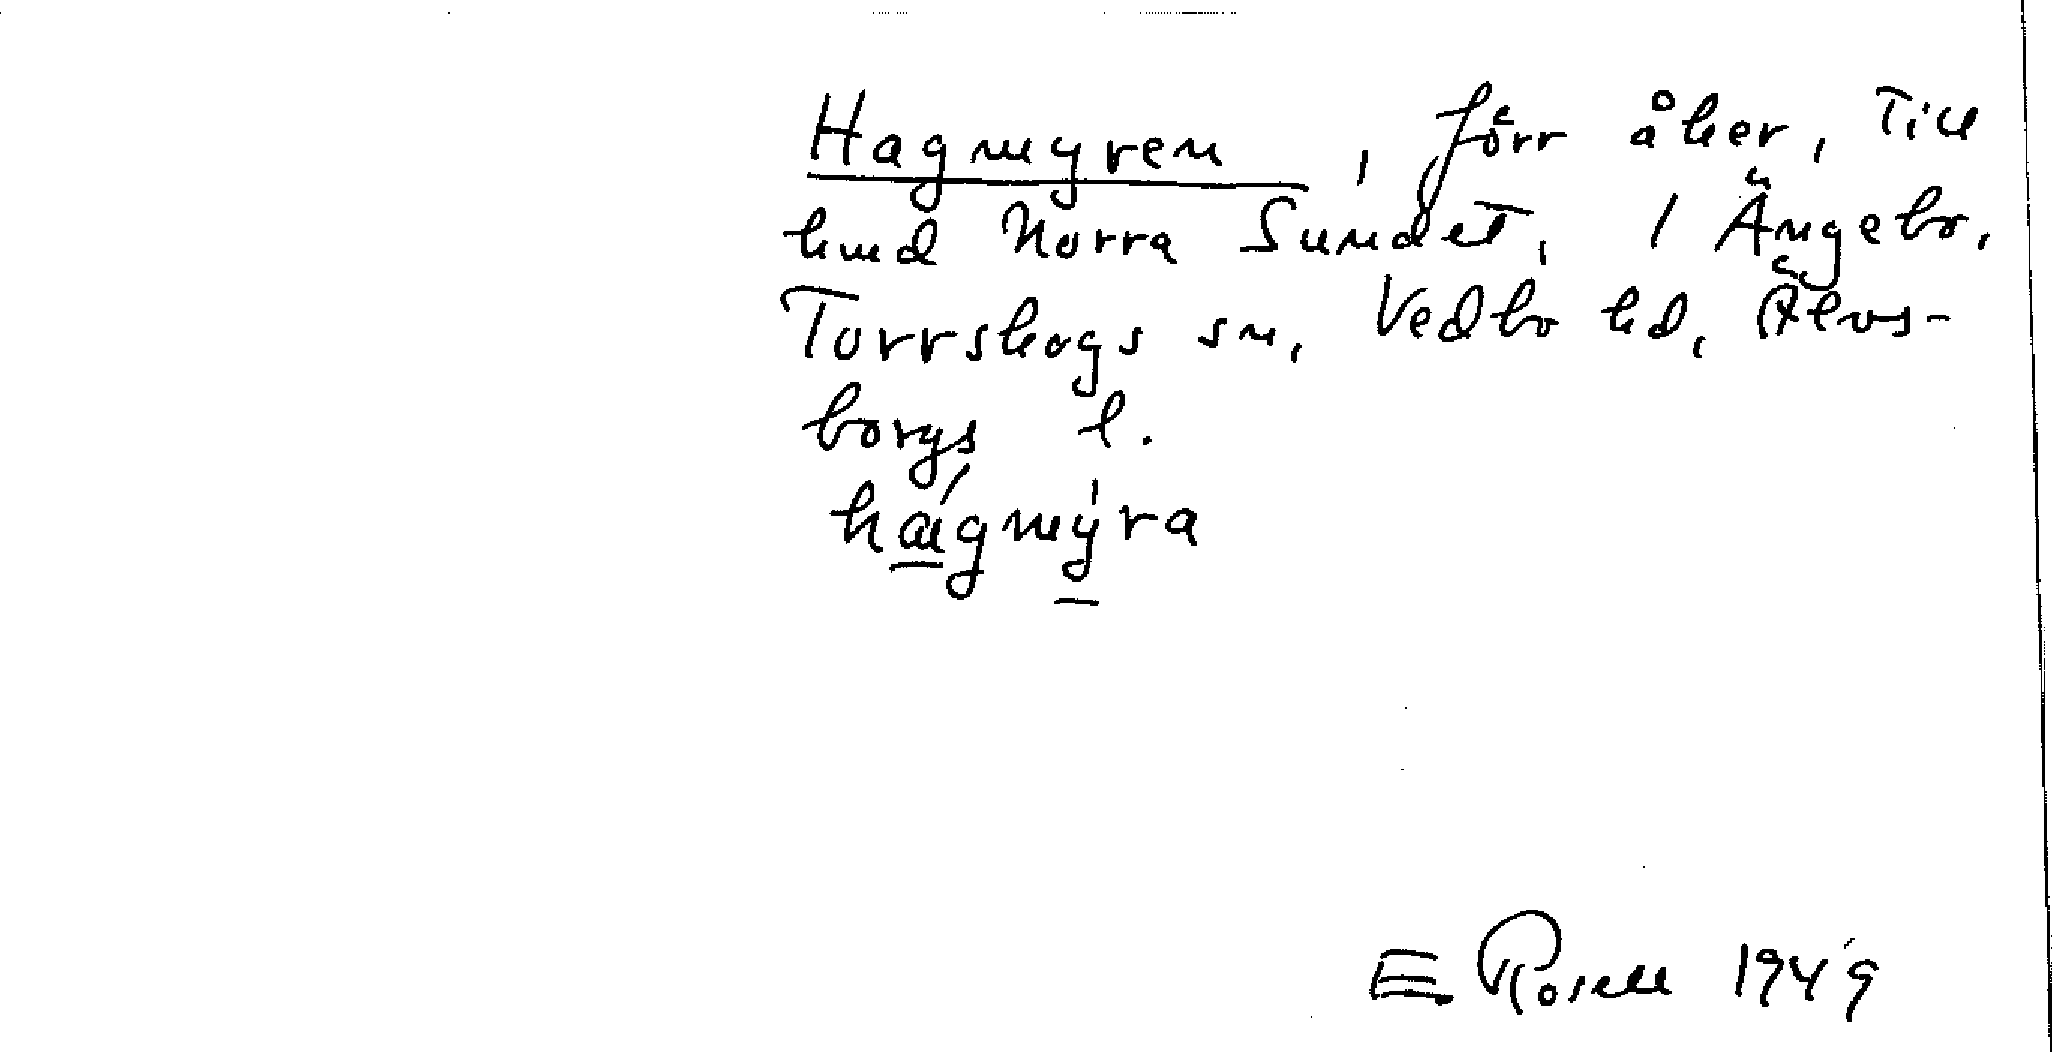 Hagmyren, förr åker, Till
hmd Norra Sundet, i Ängebo,
Torrskogs sn, Vedbo hd, Älvs-
borgs l.
hágmýra
E. Rosell 1949